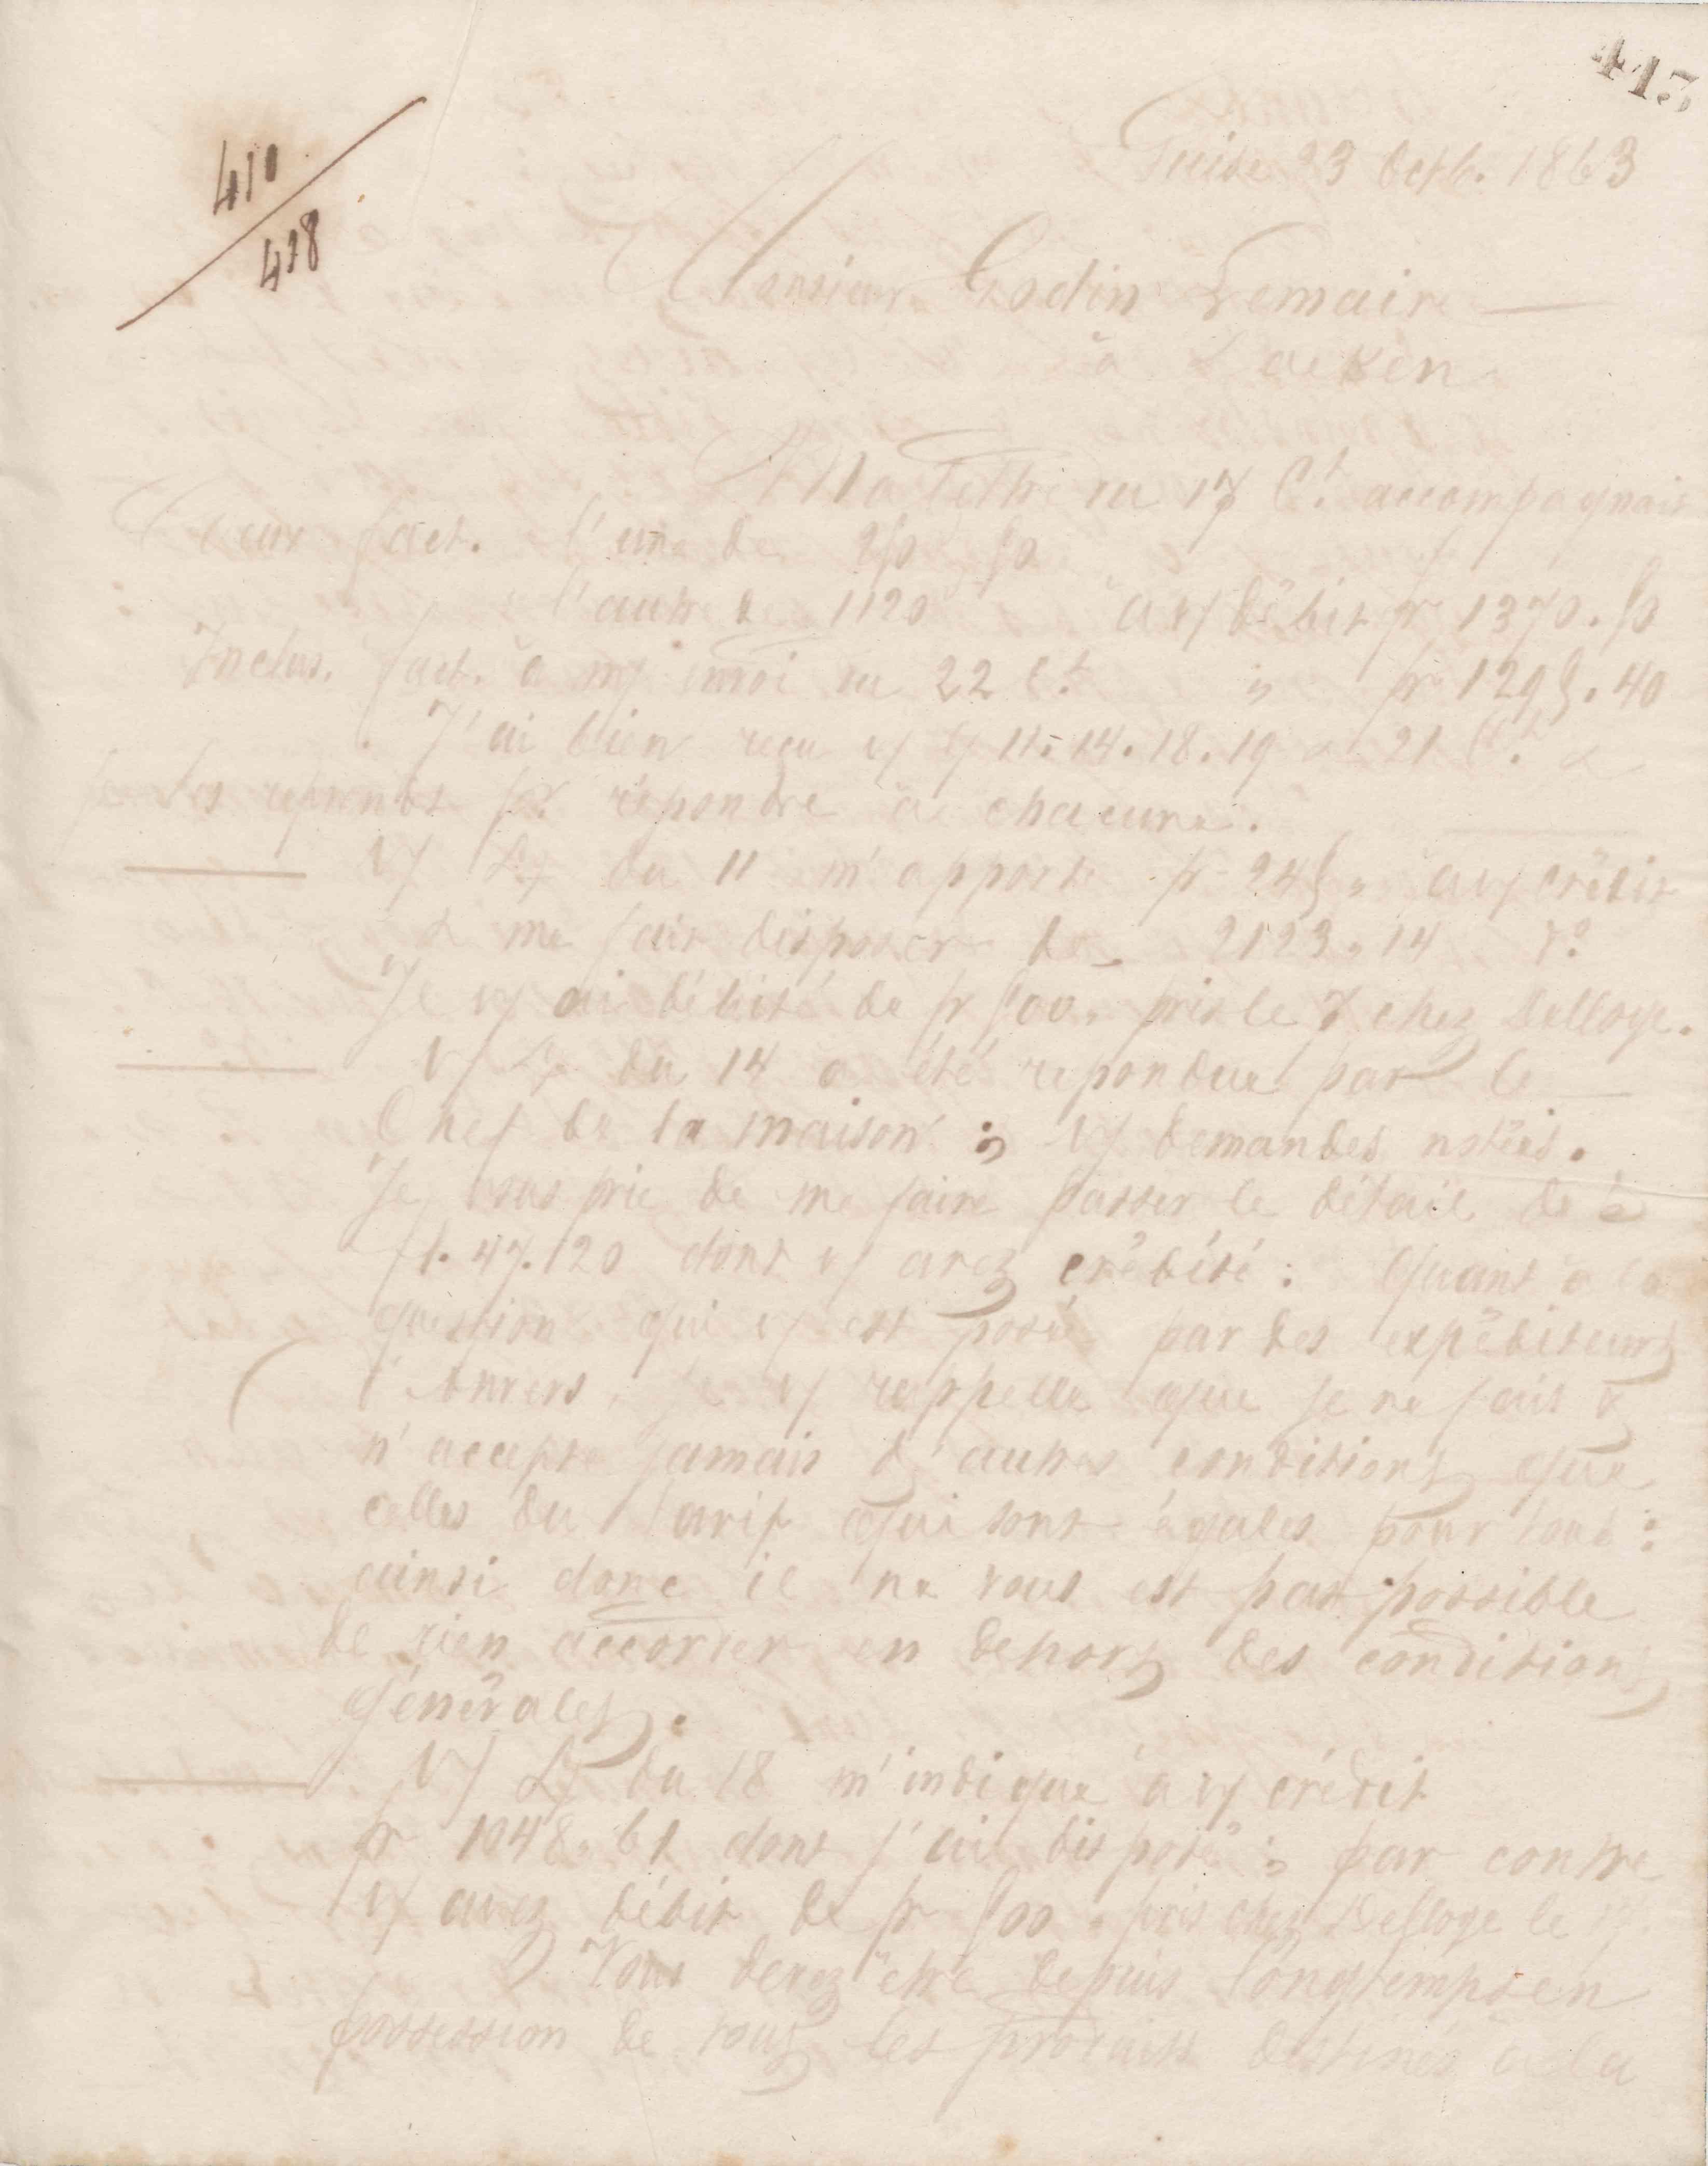 413
410
418
Guise 23 Octb. 1863
Monsieur Godin Lemaire
à Laeken
Ma lettre du 17 Ct. accompagnait
Deux fact. l'une de 250 50
l'autre de 1120 à v/ débit fr 1370.50
Inclus. fact. à m/ envoi du 22 Ct. " fr 1295.40
J'ai bien reçu v/ L/ 11. 14. 18. 19 & 21 Ct. &
je les reprends pr répondre à chacune.
V/ L/ du 11 m'apporte fr 245 " à v/ crédit
& me fait disposer de 2123.14 do
Je v/ ai débité de fr 500. pris le 7 chez Delloye.
V/ L/ du 14 a été repondue par le
Chef de la maison ; v/ demandes notées.
Je vous prie de me faire passer le détail de
f. 47.120 dont v/ avez crédité : Quant à la
question qui v/ est posée par des expéditeurs
d'Anvers, je v/ rappelle que je ne fais &
n'accepte jamais d'autres conditions que
celles du tarif qui sont égales pour tous :
ainsi donc il ne vous est pas possible
de rien accorder en dehors des conditions
générales.
V/ L/ du 18 m'indique à v/ crédit
fr 1048.61 dont j'ai disposé ; par contre
v/ avez débit de fr 500. pris chez Delloye le
Vous devez être depuis longtemps en
possession de tous les produits destinés à la